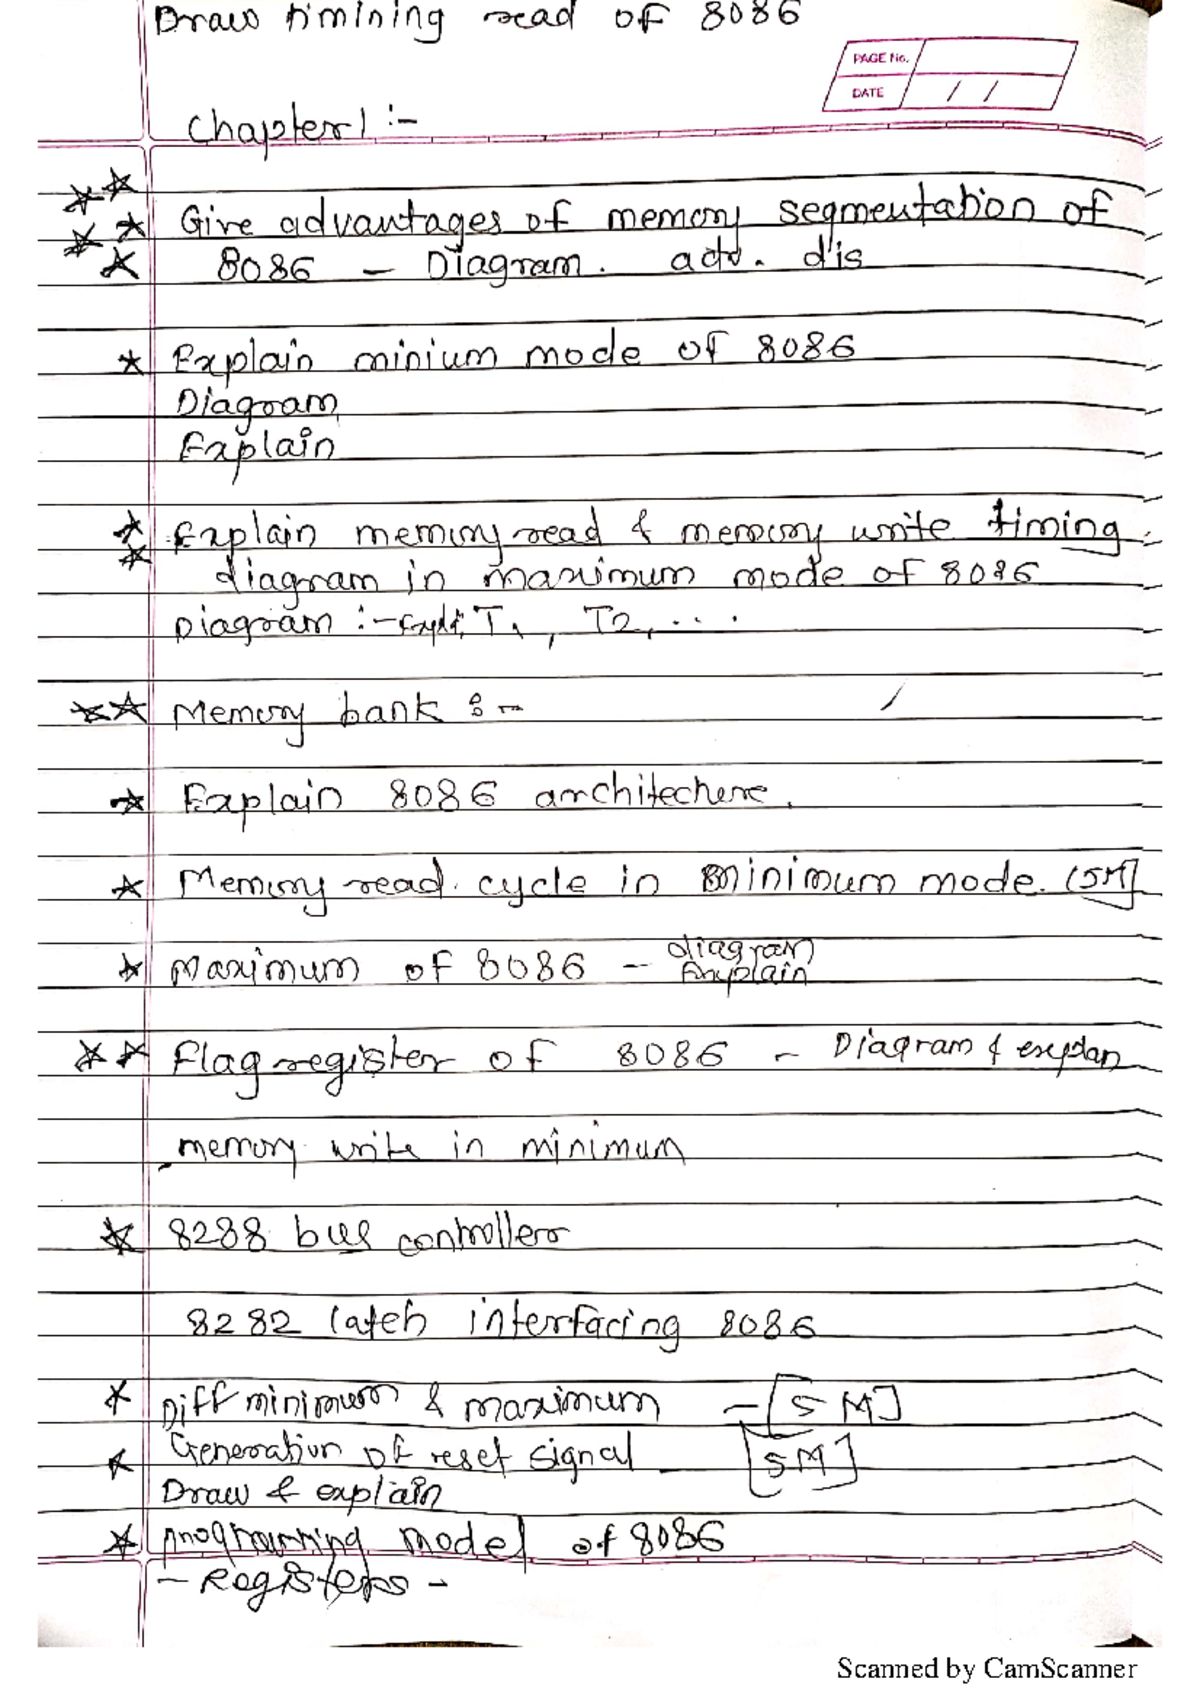 Draw timining read of 8086
PAGE No.
DATE / /
Chapter 1 :-
Give advantages of memory segmentation of
8086 - Diagram. adv. dis
Explain minium mode of 8086
Diagram
Explain
Explain memory read & memory write timing
diagram in maximum mode of 8086
Diagram :- T1, T2, ...
Memory bank :-
Explain 8086 architechere.
Memory read cycle in minimum mode. (5M]
Maximum of 8086 - diagram
Explain
Flag register of 8086 - Diagram & explan
memory write in minimum
8288 bus controller
8282 latch interfacing 8086
Diff minimum & maximum - [5 M]
Generation of reset signal [5M]
Draw & explain
programming model of 8086
- Registers -
Scanned by CamScanner